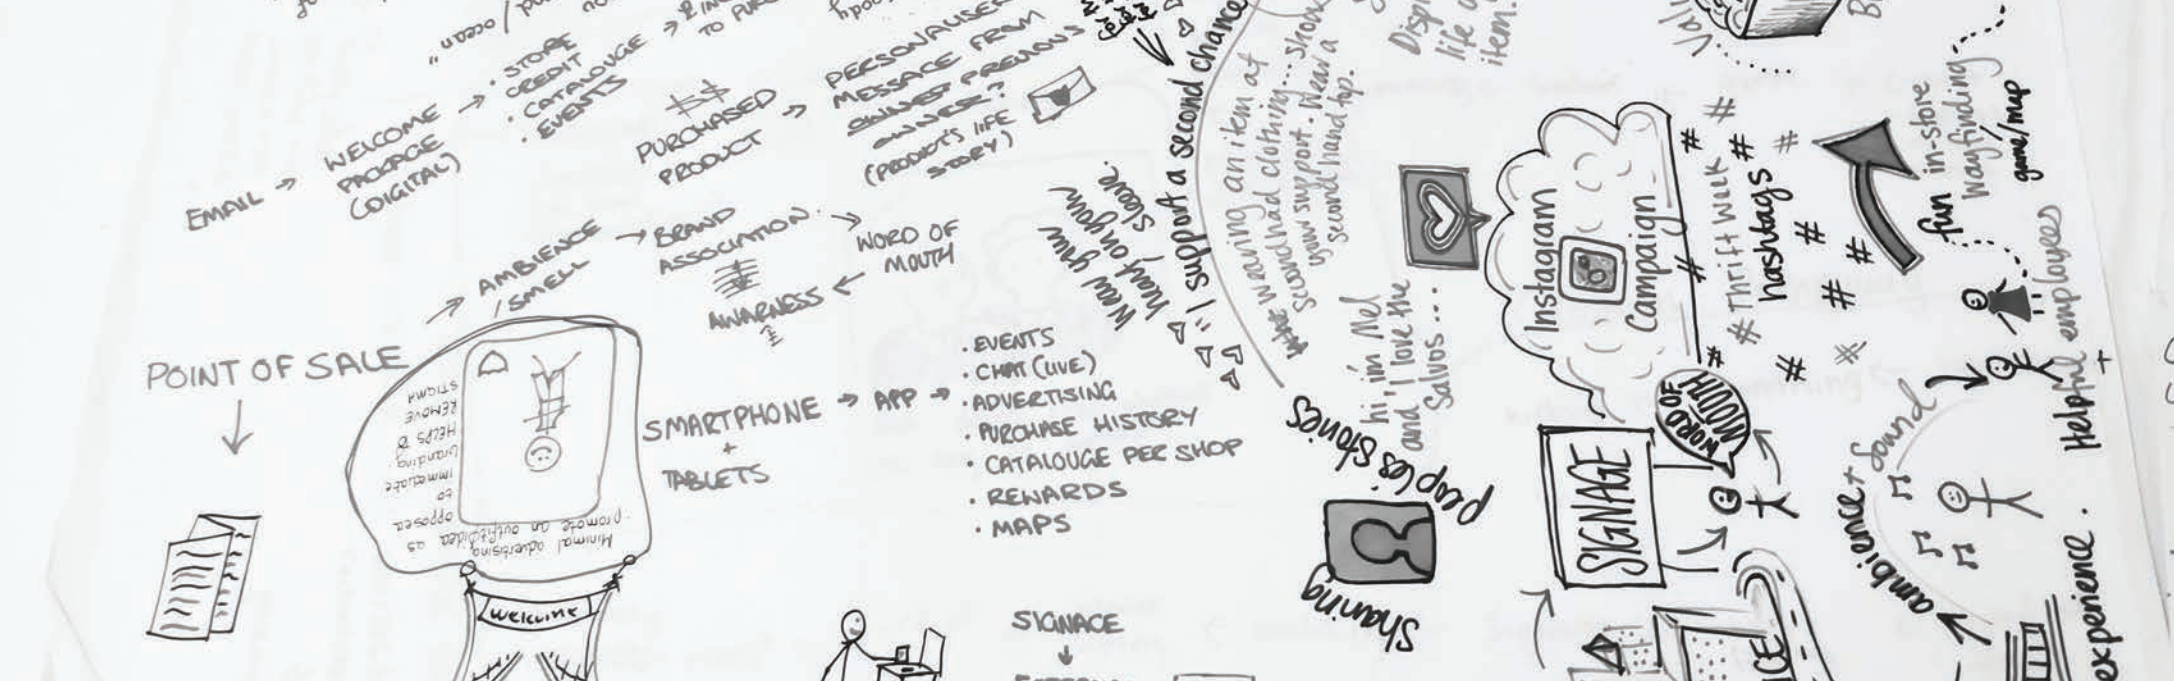 EMAIL →
WELCOME →
PACKAGE
(DIGITAL)
· STORE
CREDIT
· CATALOUGE →
· EVENTS
$$
PURCHASED →
PRODUCT
PERSONALISED
MESSAGE FROM
OWNER PREVIOUS
OWNER?
(PRODUCT'S LIFE
STORY)
→ AMBIENCE
/ SMELL
→ BRAND
ASSOCIATION.
→ WORD OF
MOUTH
AWARNESS ←
POINT OF SALE
Minimal advertising
· promote an outfit idea as
opposed
to
immediate
branding.
HELPS TO
REMOVE
STIGMA
welcome
SMARTPHONE → APP →
+
TABLETS
· EVENTS
· CHAT (LIVE)
· ADVERTISING
· PURCHASE HISTORY
· CATALOUGE PER SHOP
· REWARDS
· MAPS
SIGNAGE
"I support a second chance
Wear your
heart on your
sleeve.
wearing an item at
secondhad clothing... show
your support. Wear a
second hand top.
life
item.
hi, im Mel
and I love the
Salvos...
Sharing
peoples stories
Instagram
Campaign
# Thrift Week
hashtags
WORD OF
MOUTH
SIGNAGE
fun in-store
wayfinding
game/map
Helpful employees
+
ambience + sound
experience.